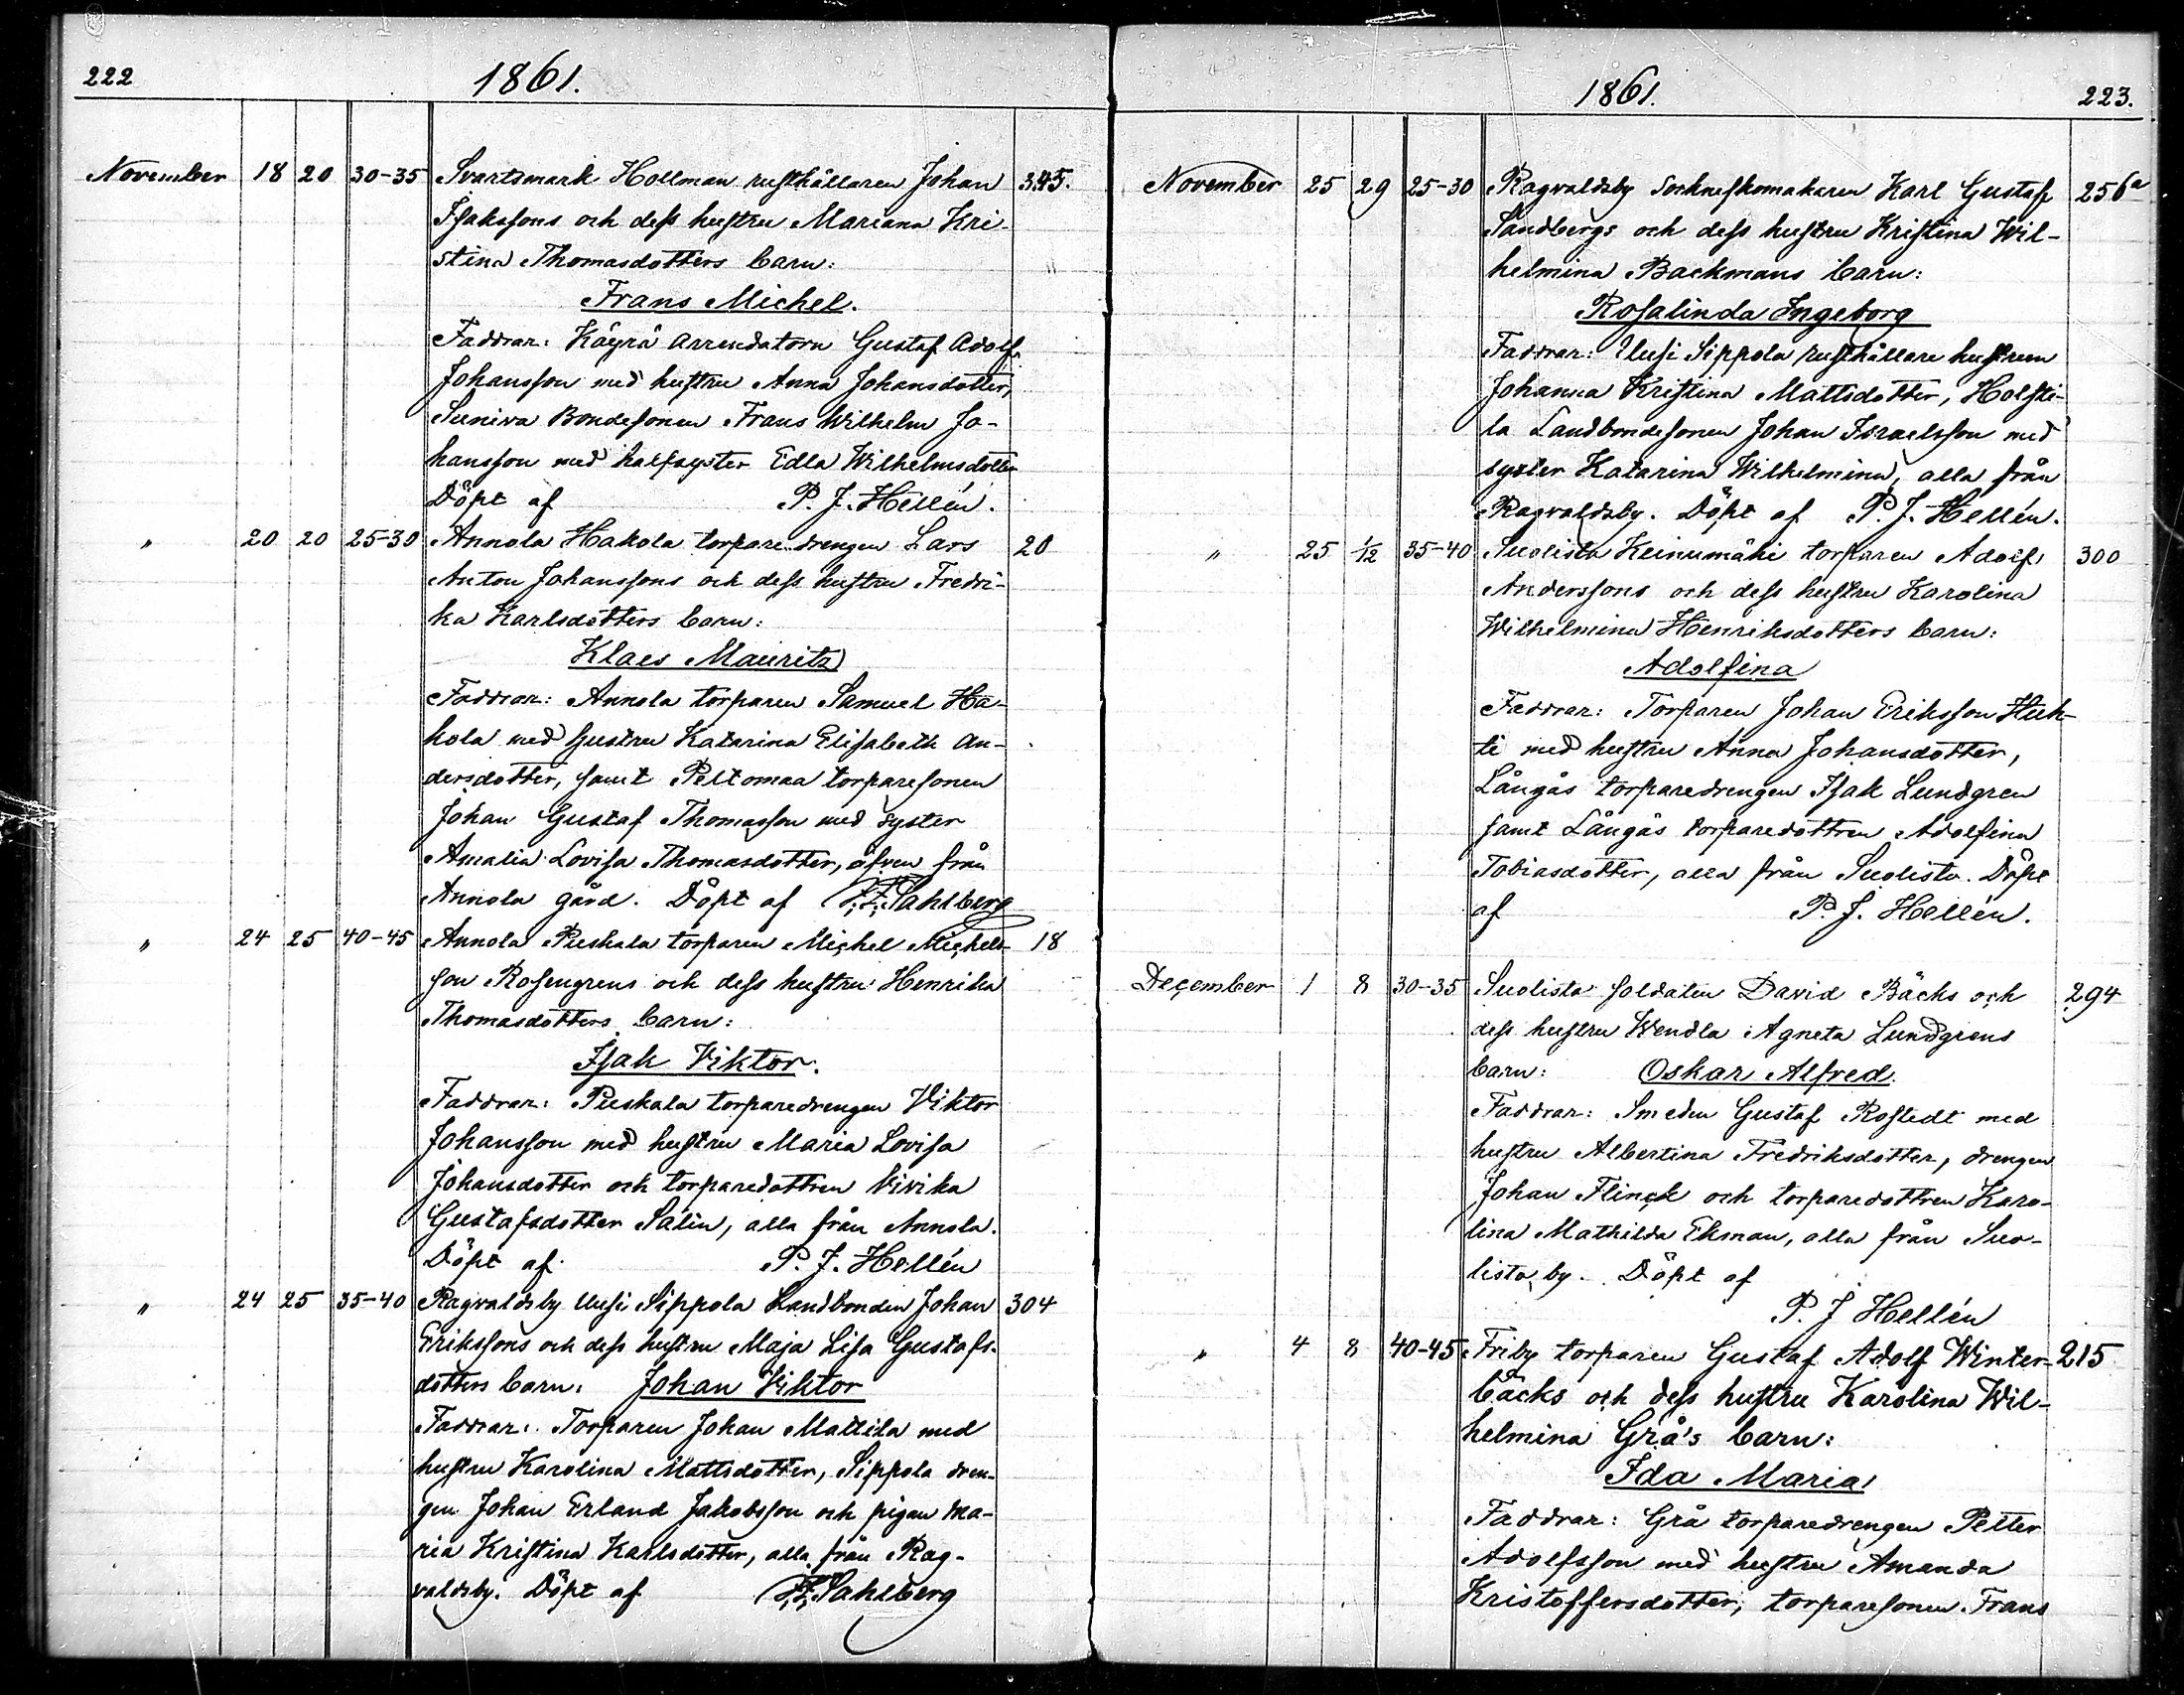 222
1861.
November 18 20 30-35 Svartsmark Hollman rusthållaren Johan 345.
Isakssons och dess hustru Mariana Kri-
stina Thomasdotters barn:
Frans Michel.
Faddrar: Käyrä Arrendatorn Gustaf Adolf
Johansson med hustru Anna Johansdotter,
Suniva Bondesonen Frans Wilhelm Jo-
hansson med halfsyster Edla Wilhelmsdotter
Döpt af P. J. Hellén.
" 20 20 25-30 Annola Hakola torparedrengen Lars 20
Anton Johanssons och dess hustru Fredri-
ka Karlsdotters barn:
Klaes Mauritz
Faddrar: Annola torparen Samuel Ha-
kola med hustru Katarina Elisabeth An-
dersdotter, samt Peltomaa torparesonen
Johan Gustaf Thomasson med syster
Amalia Lovisa Thomasdotter, äfven från
Annola gård. Döpt af F. F. Sahlberg
" 24 25 40-45 Annola Puskala torparen Michel Michels- 18
son Rosengrens och dess hustru Henrika
Thomasdotters barn:
Isak Viktor.
Faddrar: Puskala torparedrengen Viktor
Johansson med hustru Maria Lovisa
Johansdotter och torparedottren Vivika
Gustafsdotter Salin, alla från Annola.
Döpt af P. J. Hellén
" 24 25 35-40 Ragvaldsby Uusi Sippola Landbonden Johan 304
Erikssons och dess hustru Maja Lisa Gustafs-
dotters barn: Johan Viktor
Faddrar: Torparen Johan Mattila med
hustru Karolina Mattsdotter, Sippola dren-
gen Johan Erland Jakobsson och pigan Ma-
ria Kristina Karlsdotter, alla från Rag-
valdsby. Döpt af F. F. Sahlberg
1861.
223.
November 25 29 25-30 Ragvaldsby Sockneskomakaren Karl Gustaf 256a
Sandbergs och dess hustru Kristina Wil-
helmina Backmans barn:
Rosalinda Ingeborg
Faddrar: Uusi Sippola rusthållare hustrun
Johanna Kristina Mattsdotter, Holsti-
la Landbondesonen Johan Israelsson med
syster Katarina Wilhelmina, alla från
Ragvaldsby. Döpt af P. J. Hellén.
" 25 1/12 35-40 Suolista Keinumäki torparen Adolf 300
Anderssons och dess hustru Karolina
Wilhelmina Henriksdotters barn:
Adolfina
Faddrar: Torparen Johan Eriksson Huh-
ti med hustru Anna Johansdotter,
Långås torparedrengen Isak Lundgren
samt Långås torparedottren Adolfina
Tobiasdotter, alla från Suolista. Döpt
af P. J. Hellén.
December 1 8 30-35 Suolista soldaten David Bäcks och 294
dess hustru Wendla Agneta Lundgrens
barn: Oskar Alfred.
Faddrar: Smeden Gustaf Rostedt med
hustru Albertina Fredriksdotter, drengen
Johan Flinck och torparedottren Karo-
lina Mathilda Ekman, alla från Suo-
lista by. Döpt af
P. J Hellén
" 4 8 40-45 Friby torparen Gustaf Adolf Winter- 215
bäcks och dess hustru Karolina Wil-
helmina Grå's barn:
Ida Maria
Faddrar: Grå torparedrengen Petter
Adolfsson med hustru Amanda
Kristoffersdotter, torparesonen Frans